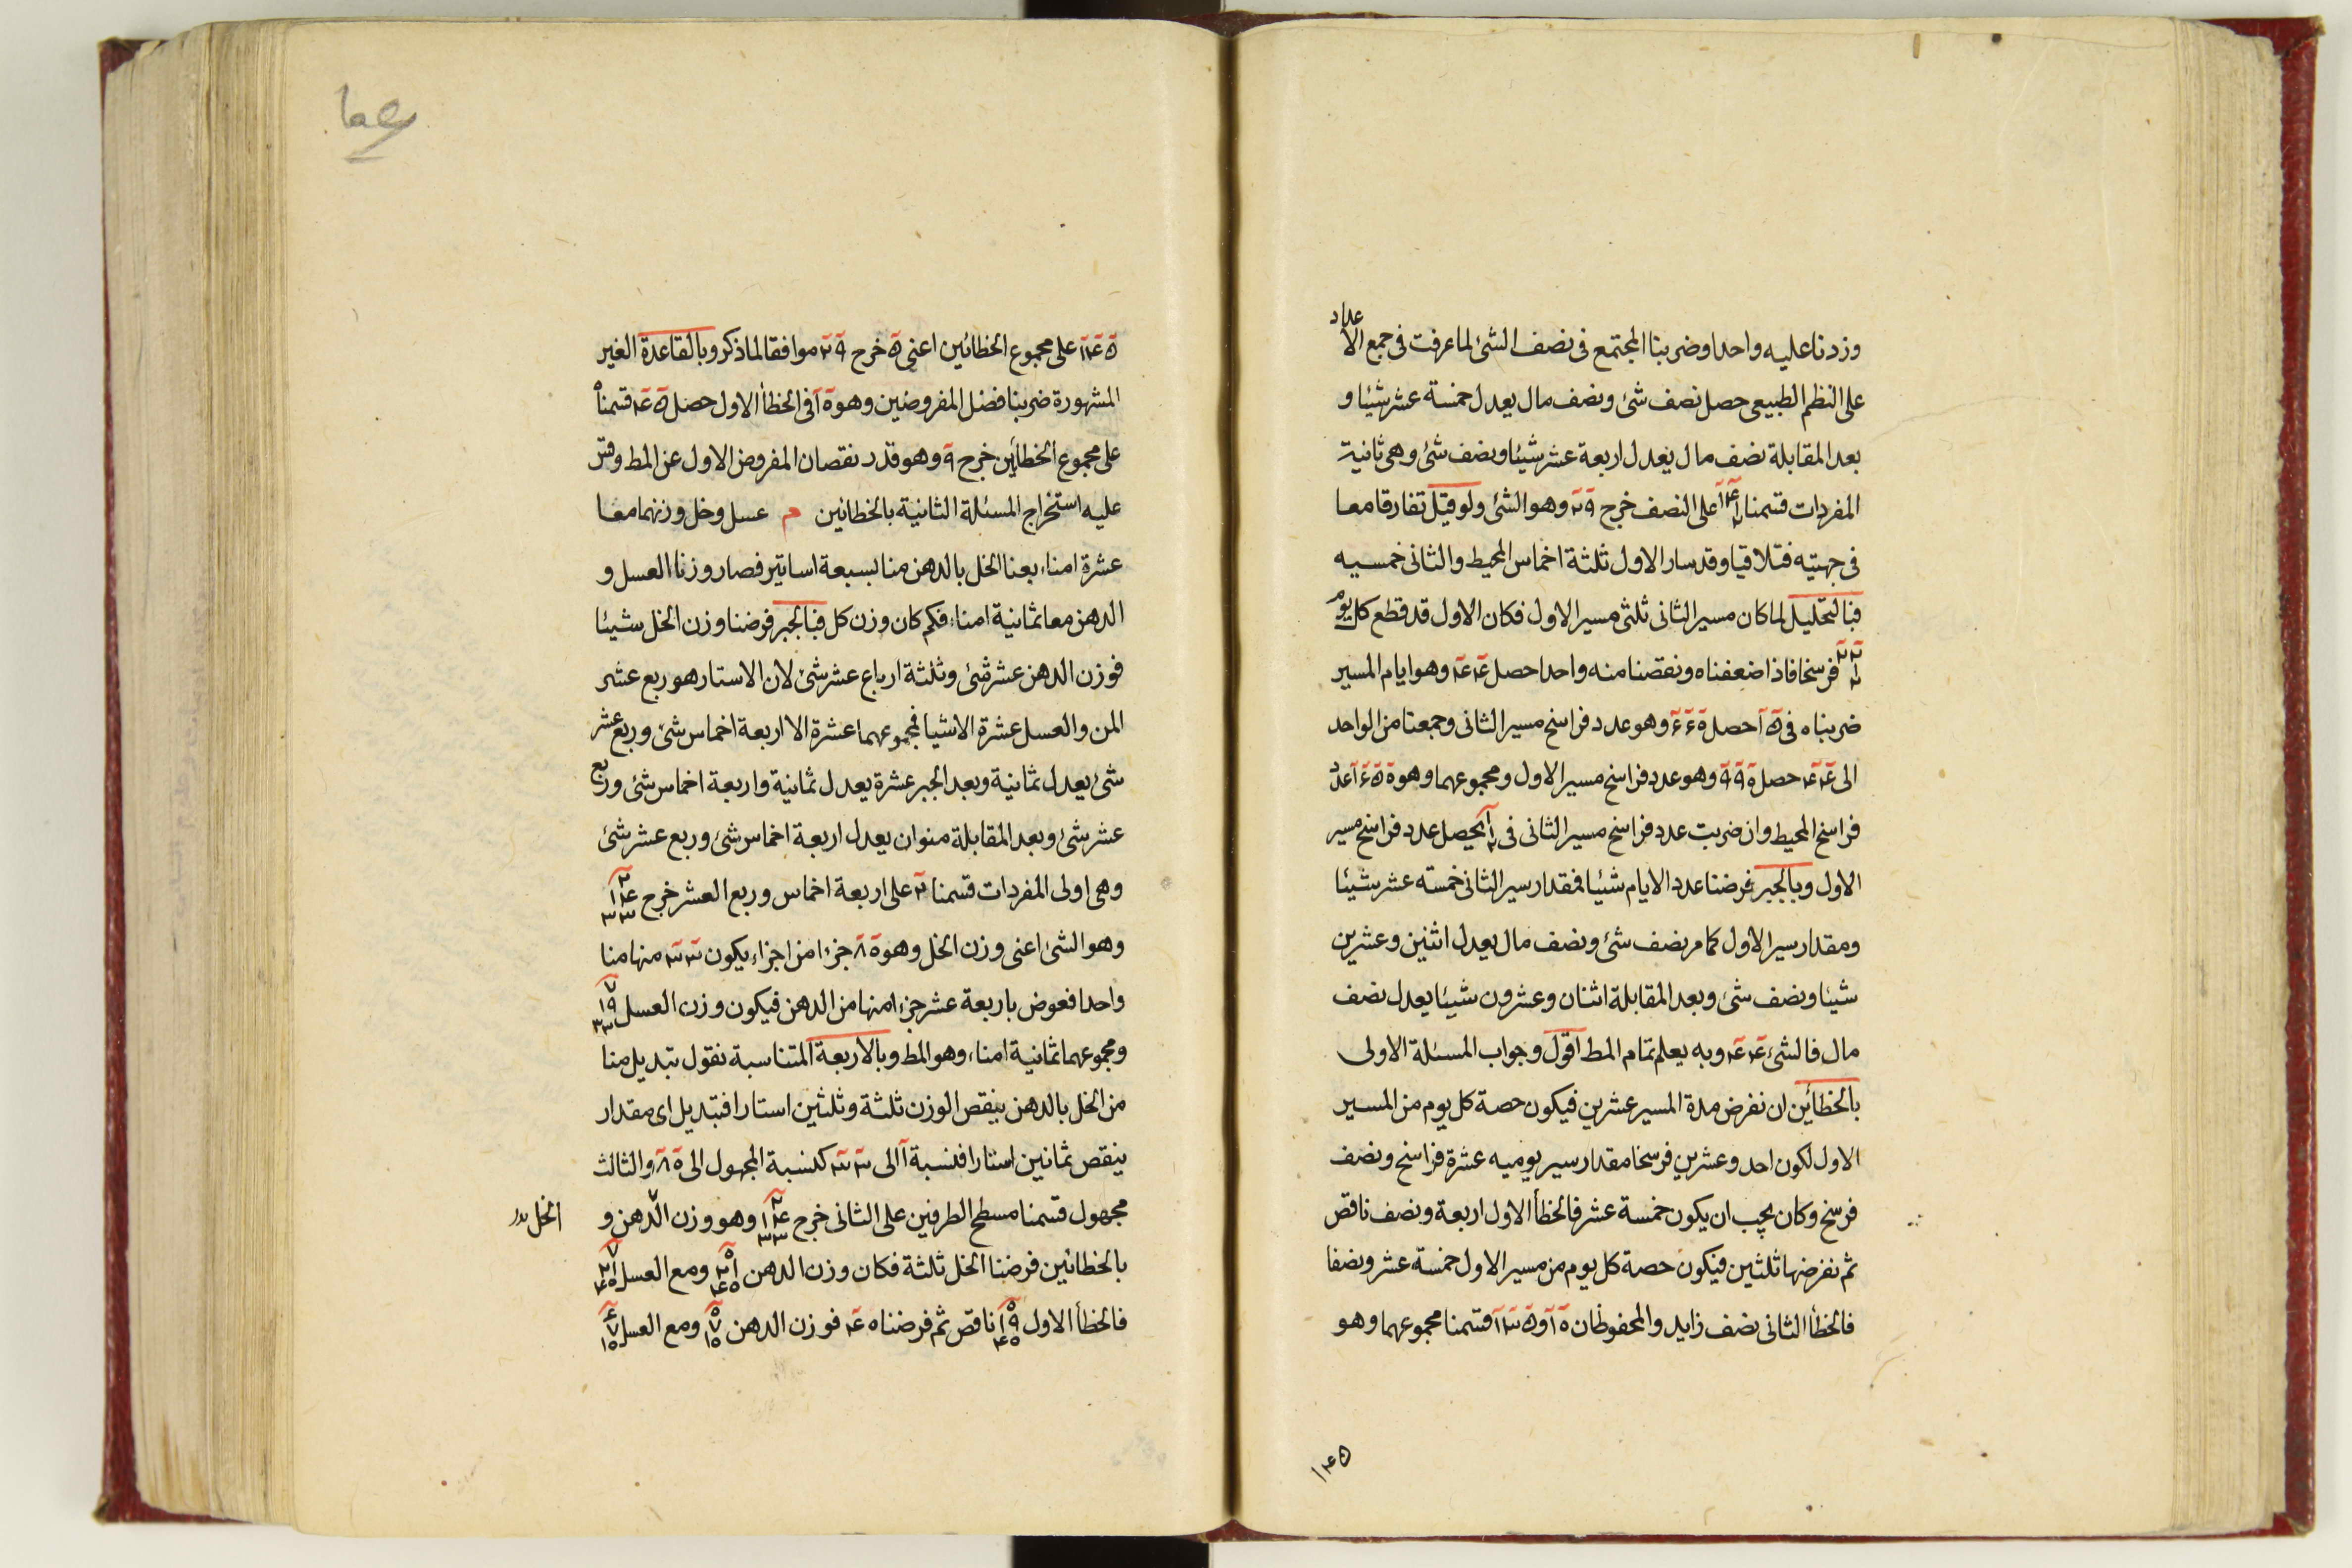 وزدنا عليه واحدا وضربنا المجتمع فى نصف الشئ لما عرفت فى جمع الاعداد
على النظم الطبيعى حصل نصف شئ ونصف مال يعدل خمسة عشر شيئا و
بعد المقابلة نصف مال يعدل اربعة عشر شيئا ونصف شئ وهى ثانية
المفردات قسمنا ۱۴ ۱ ۲ على النصف خرج ۲۹ وهو الشئ ولو قيل تفارقا معا
فى جهتيه فتلاقيا وقد سار الاول ثلثة اخماس المحيط والثانى خمسيه
فبالتحليل لما كان مسير الثانى ثلثى مسير الاول فكان الاول قد قطع كل يوم
۲۲ ۱ ۲ فرسخا فاذا ضعفناه ونقصنا منه واحدا حصل ۴۴ وهو ايام المسير
ضربناه فى ۱۵ حصل ۶۶۰ وهو عدد فراسخ مسير الثانى وجمعنا من الواحد
الى ۴۴ حصل ۹۹۰ وهو عدد فراسخ مسير الاول ومجموعهما وهو ۱۶۵۰ عدد
فراسخ المحيط وان ضربت عدد فراسخ مسير الثانى فى ۱ ۱ ۲ يحصل عدد فراسخ مسير
الاول وبالجبر فرضنا عدد الايام شيئا فمقدار سير الثانى خمسة عشر شيئا
ومقدار سير الاول كما مر نصف شئ ونصف مال يعدل اثنين وعشرين
شيئا ونصف شئ وبعد المقابلة اثنان وعشرون شيئا يعدل نصف
مال فالشئ ۴۴ وبه يعلم تمام المط اقول وجواب المسئلة الاولى
بالخطائين ان نفرض مدة المسير عشرين فيكون حصة كل يوم من المسير
الاول لكون احد وعشرين فرسخا مقدار سير يوميه عشرة فراسخ ونصف
فرسخ وكان يجب ان يكون خمسة عشر فالخطأ الاول اربعة ونصف ناقص
ثم نفرضها ثلثين فيكون حصة كل يوم من مسير الاول خمسة عشر ونصفا
فالخطأ الثانى نصف زايد والمحفوظان ۱۰ و ۱۳۵ قسمنا مجموعهما وهو
۱۴۵
۱۴۵ على مجموع الخطائين اعنى ۵ خرج ۲۹ موافقا لما ذكر وبالقاعدة الغير
المشهورة ضربنا فضل المفروضين وهو ۱۰ فى الخطأ الاول حصل ۴۵ قسمناه
على مجموع الخطأين خرج ۹ وهو قدر نقصان المفروض الاول عن المط وقس
عليه استخراج المسئلة الثانية بالخطائين م عسل وخل وزنهما معا
عشرة امناء بعنا الخل بالدهن منا بسبعة اساتير فصار وزنا العسل و
الدهن معا ثمانية امناء فكم كان وزن كل فبالجبر فرضنا وزن الخل شيئا
فوزن الدهن عشر شئ وثلثة ارباع عشر شئ لان الاستار هو ربع عشر
المن والعسل عشرة الا شيا فمجموعهما عشرة الا اربعة اخماس شئ وربع عشر
شئ يعدل ثمانية وبعد الجبر عشرة يعدل ثمانية واربعة اخماس شئ وربع
عشر شئ وبعد المقابلة منوان يعدل اربعة اخماس شئ وربع عشر شئ
وهى اولى المفردات قسمنا ۲ على اربعة اخماس وربع العشر خرج ۲ ۱۴ ۳۳
وهو الشئ اعنى وزن الخل وهو ۸۰ جزءا من اجزاء يكون ۳۳ منها منا
واحدا فعوض باربعة عشر جزءا منها من الدهن فيكون وزن العسل ۷ ۱۹ ۳۳
ومجموعهما ثمانية امناء وهو المط وبالاربعة المتناسبة نقول تبديل منا
من الخل بالدهن ينقص الوزن ثلثة وثلثين استارا فبتديل اى مقدار
ينقص ثمانين استارا فنسبة ۱ الى ۳۳ كنسبة المجهول الى ۸۰ والثالث
مجهول قسمنا مسطح الطرفين على الثانى خرج ۲ ۱۴ ۳۳ وهو وزن الدهن و
الخل
بالخطائين فرضنا الخل ثلثة فكان وزن الدهن ۲۱ ۴۰ ومع العسل ۷ ۲۱ ۴۰
فالخطأ الاول ۱۹ ۴۰ ناقص ثم فرضناه ۴ فوزن الدهن ۷ ۱۰ ومع العسل ۶ ۷ ۱۰